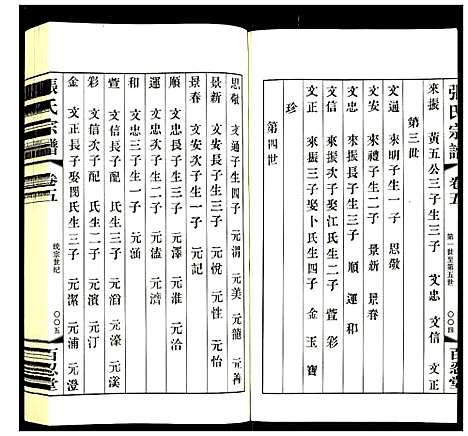 張氏宗譜 卷五 第一世至第五世 〇〇四 百忍堂
來振 黃五公三子生三子 文忠 文信 文正
第三世
文通 來明子生一子 思敬
文安 來禮子生二子 景新 景春
文忠 來振長子生三子 順 運 和
文信 來振次子娶江氏生二子 萱 彩
文正 來振三子娶卜氏生四子 金 玉 寶
珍
第四世
思敬 文通子生四子 元清 元美 元龍 元善
景新 文安長子生三子 元悅 元性 元怡
景春 文安次子生一子 元記
順 文忠長子生三子 元澤 元淮 元洽
運 文忠次子生二子 元溘 元濟
和 文忠三子生一子 元涵
萱 文信長子配 氏生三子 元滔 元濠 元溪
彩 文信次子配 氏生二子 元濱 元汀
金 文正長子娶閔氏生三子 元潔 元浦 元澄
張氏宗譜 卷五 統宗世紀 〇〇五 百忍堂